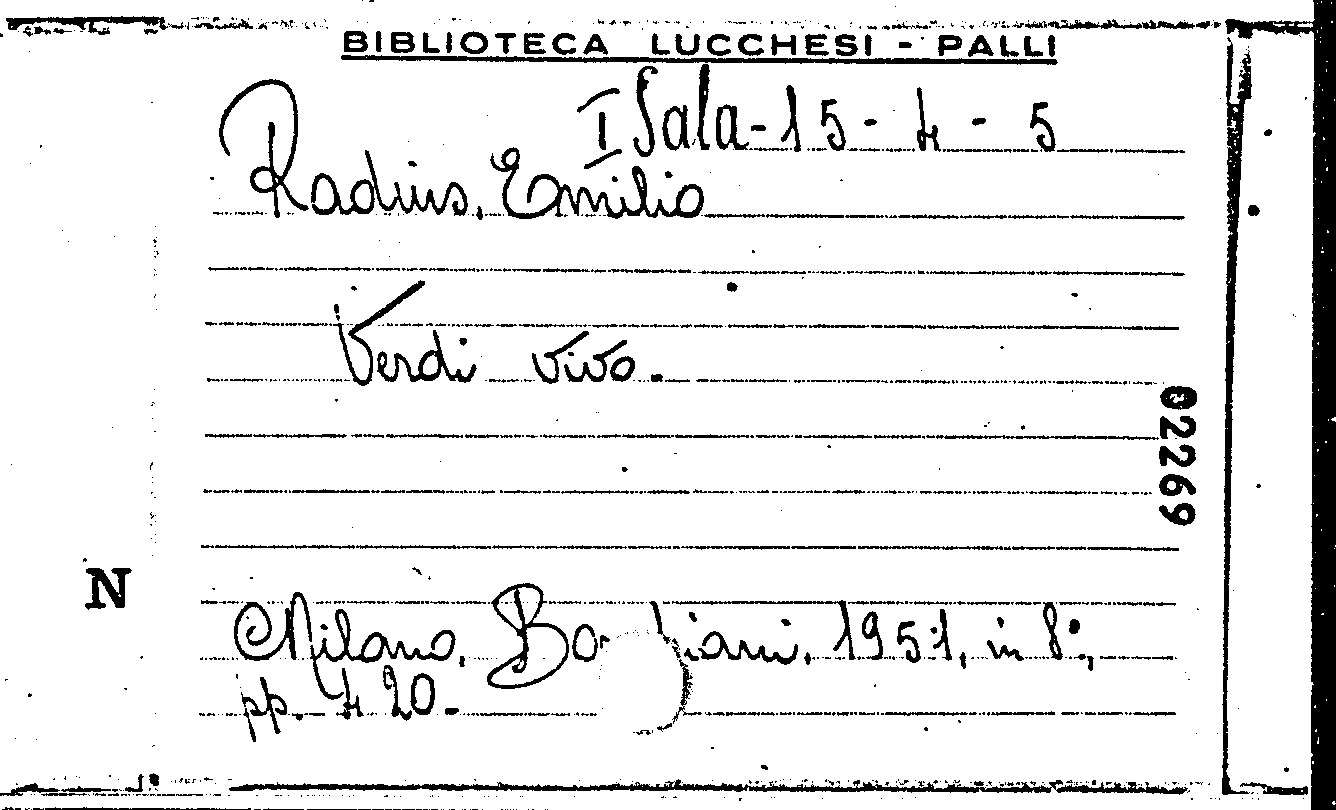 BIBLIOTECA LUCCHESI - PALLI
I Sala - 15 - 4 - 5
Radius, Emilio
Verdi vivo.
02269
N
Milano, 1951, in 8°,
pp. 420.